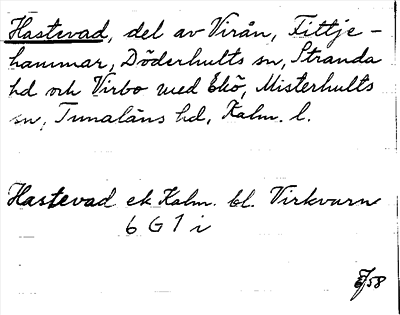 Hastevad, del av Virån, Fittje-
hammar, Döderhults sn, Stranda
hd och Virbo med Ekö, Misterhults
sn, Tunaläns hd, Kalm. l.
Hastevad ek Kalm. bl. Virkvarn
6 G 7 i
/58